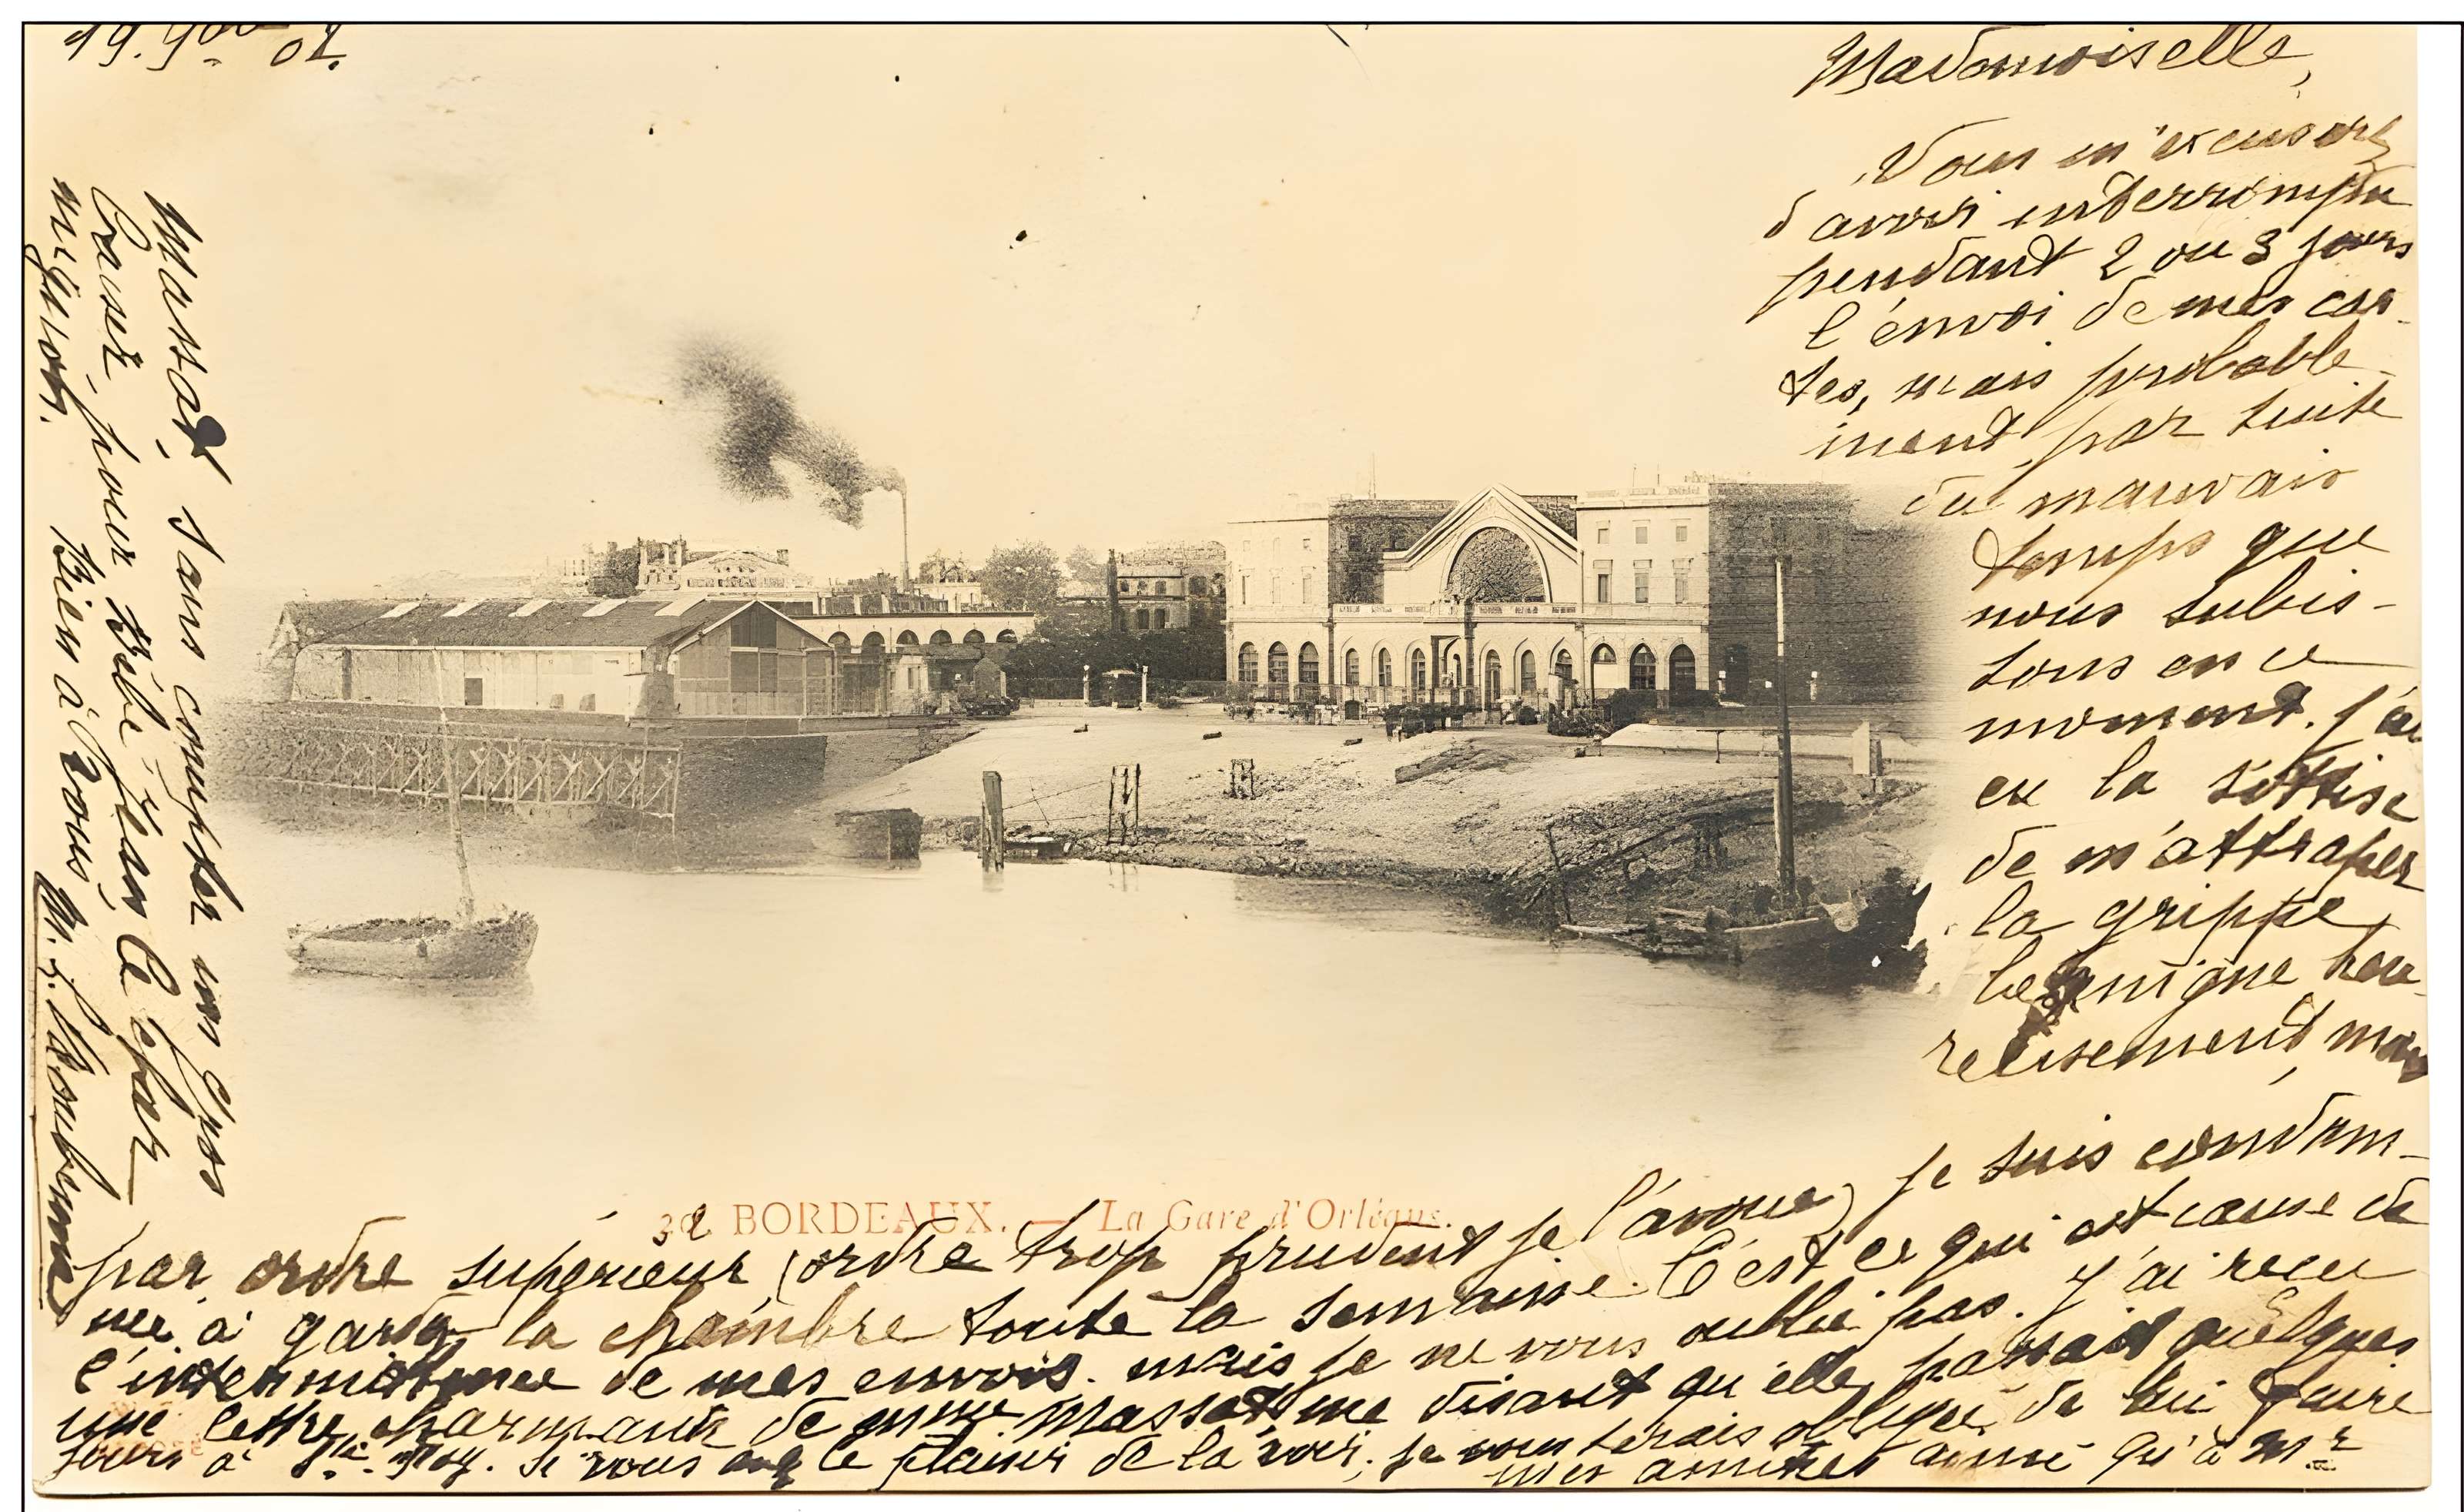 19. 9bre 02.
Mademoiselle,
Vous m'excuserez
d'avoir interrompu
pendant 2 ou 3 jours
l'envoi de mes car-
tes, mais probable-
ment par suite
du mauvais
temps que
nous subis-
sons en ce
moment. j'ai
eu la sottise
de m'attraper
la grippe,
bénigne heu-
reusement, mais
je suis condam-
32 BORDEAUX. — La Gare d'Orléans.
par ordre supérieur (ordre trop prudent je l'avoue)
né à garder la chambre toute la semaine. C'est ce qui est cause de
l'intermittence de mes envois. mais je ne vous oublie pas. J'ai reçu
une lettre charmante de Mme Massot me disant qu'elle passait quelques
jours à Ste. Foy. Si vous avez le plaisir de la voir, je vous serais obligé de lui faire
mes amitiés ainsi qu'à Mr
Massot sans compter un gros
baiser pour Bébé
mignon. Bien à vous